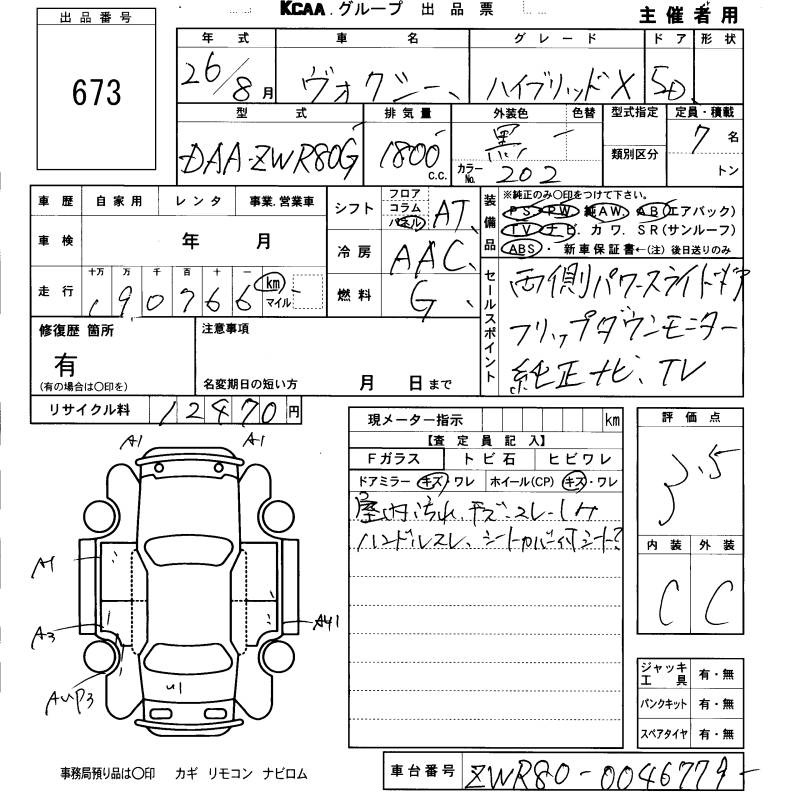 KCAA.グループ 出品票
主催者用
出品番号
673
年式 車名 グレード ドア 形状
26/8月 ヴォクシー ハイブリッドX 5D
型式 排気量 外装色 色替 型式指定 定員・積載
DAA-ZWR80G 1800 c.c. 黒 7名
カラーNo. 202 類別区分 トン
車歴 自家用 レンタ 事業.営業車
車検 年 月
走行 十万 万 千 百 十 一
190766 km マイル
シフト フロア コラム パネル AT
冷房 AAC
燃料 G
装備品
※純正のみ○印をつけて下さい。
PS PW 純AW. AB(エアバック)
TV ナビ. カワ. SR(サンルーフ)
ABS 新車保証書←(注)後日送りのみ
セールスポイント
両側パワースライドドア
フリップダウンモニター
純正ナビ、TV
修復歴 箇所
有
(有の場合は○印を)
注意事項
名変期日の短い方 月 日まで
リサイクル料 12470円
現メーター指示 km
【査定員記入】
Fガラス トビ石 ヒビワレ
ドアミラー キズ・ワレ ホイール(CP) キズ・ワレ
室内汚れ、キズ・スレ・シケ
ハンドルスレ、シートカバー付シート?
評価点
3.5
内装 外装
C C
ジャッキ工具 有・無
パンクキット 有・無
スペアタイヤ 有・無
A1 A1
A1
A3 A41
AUP3
U1
事務局預り品は○印 カギ リモコン ナビロム
車台番号 ZWR80-0046779